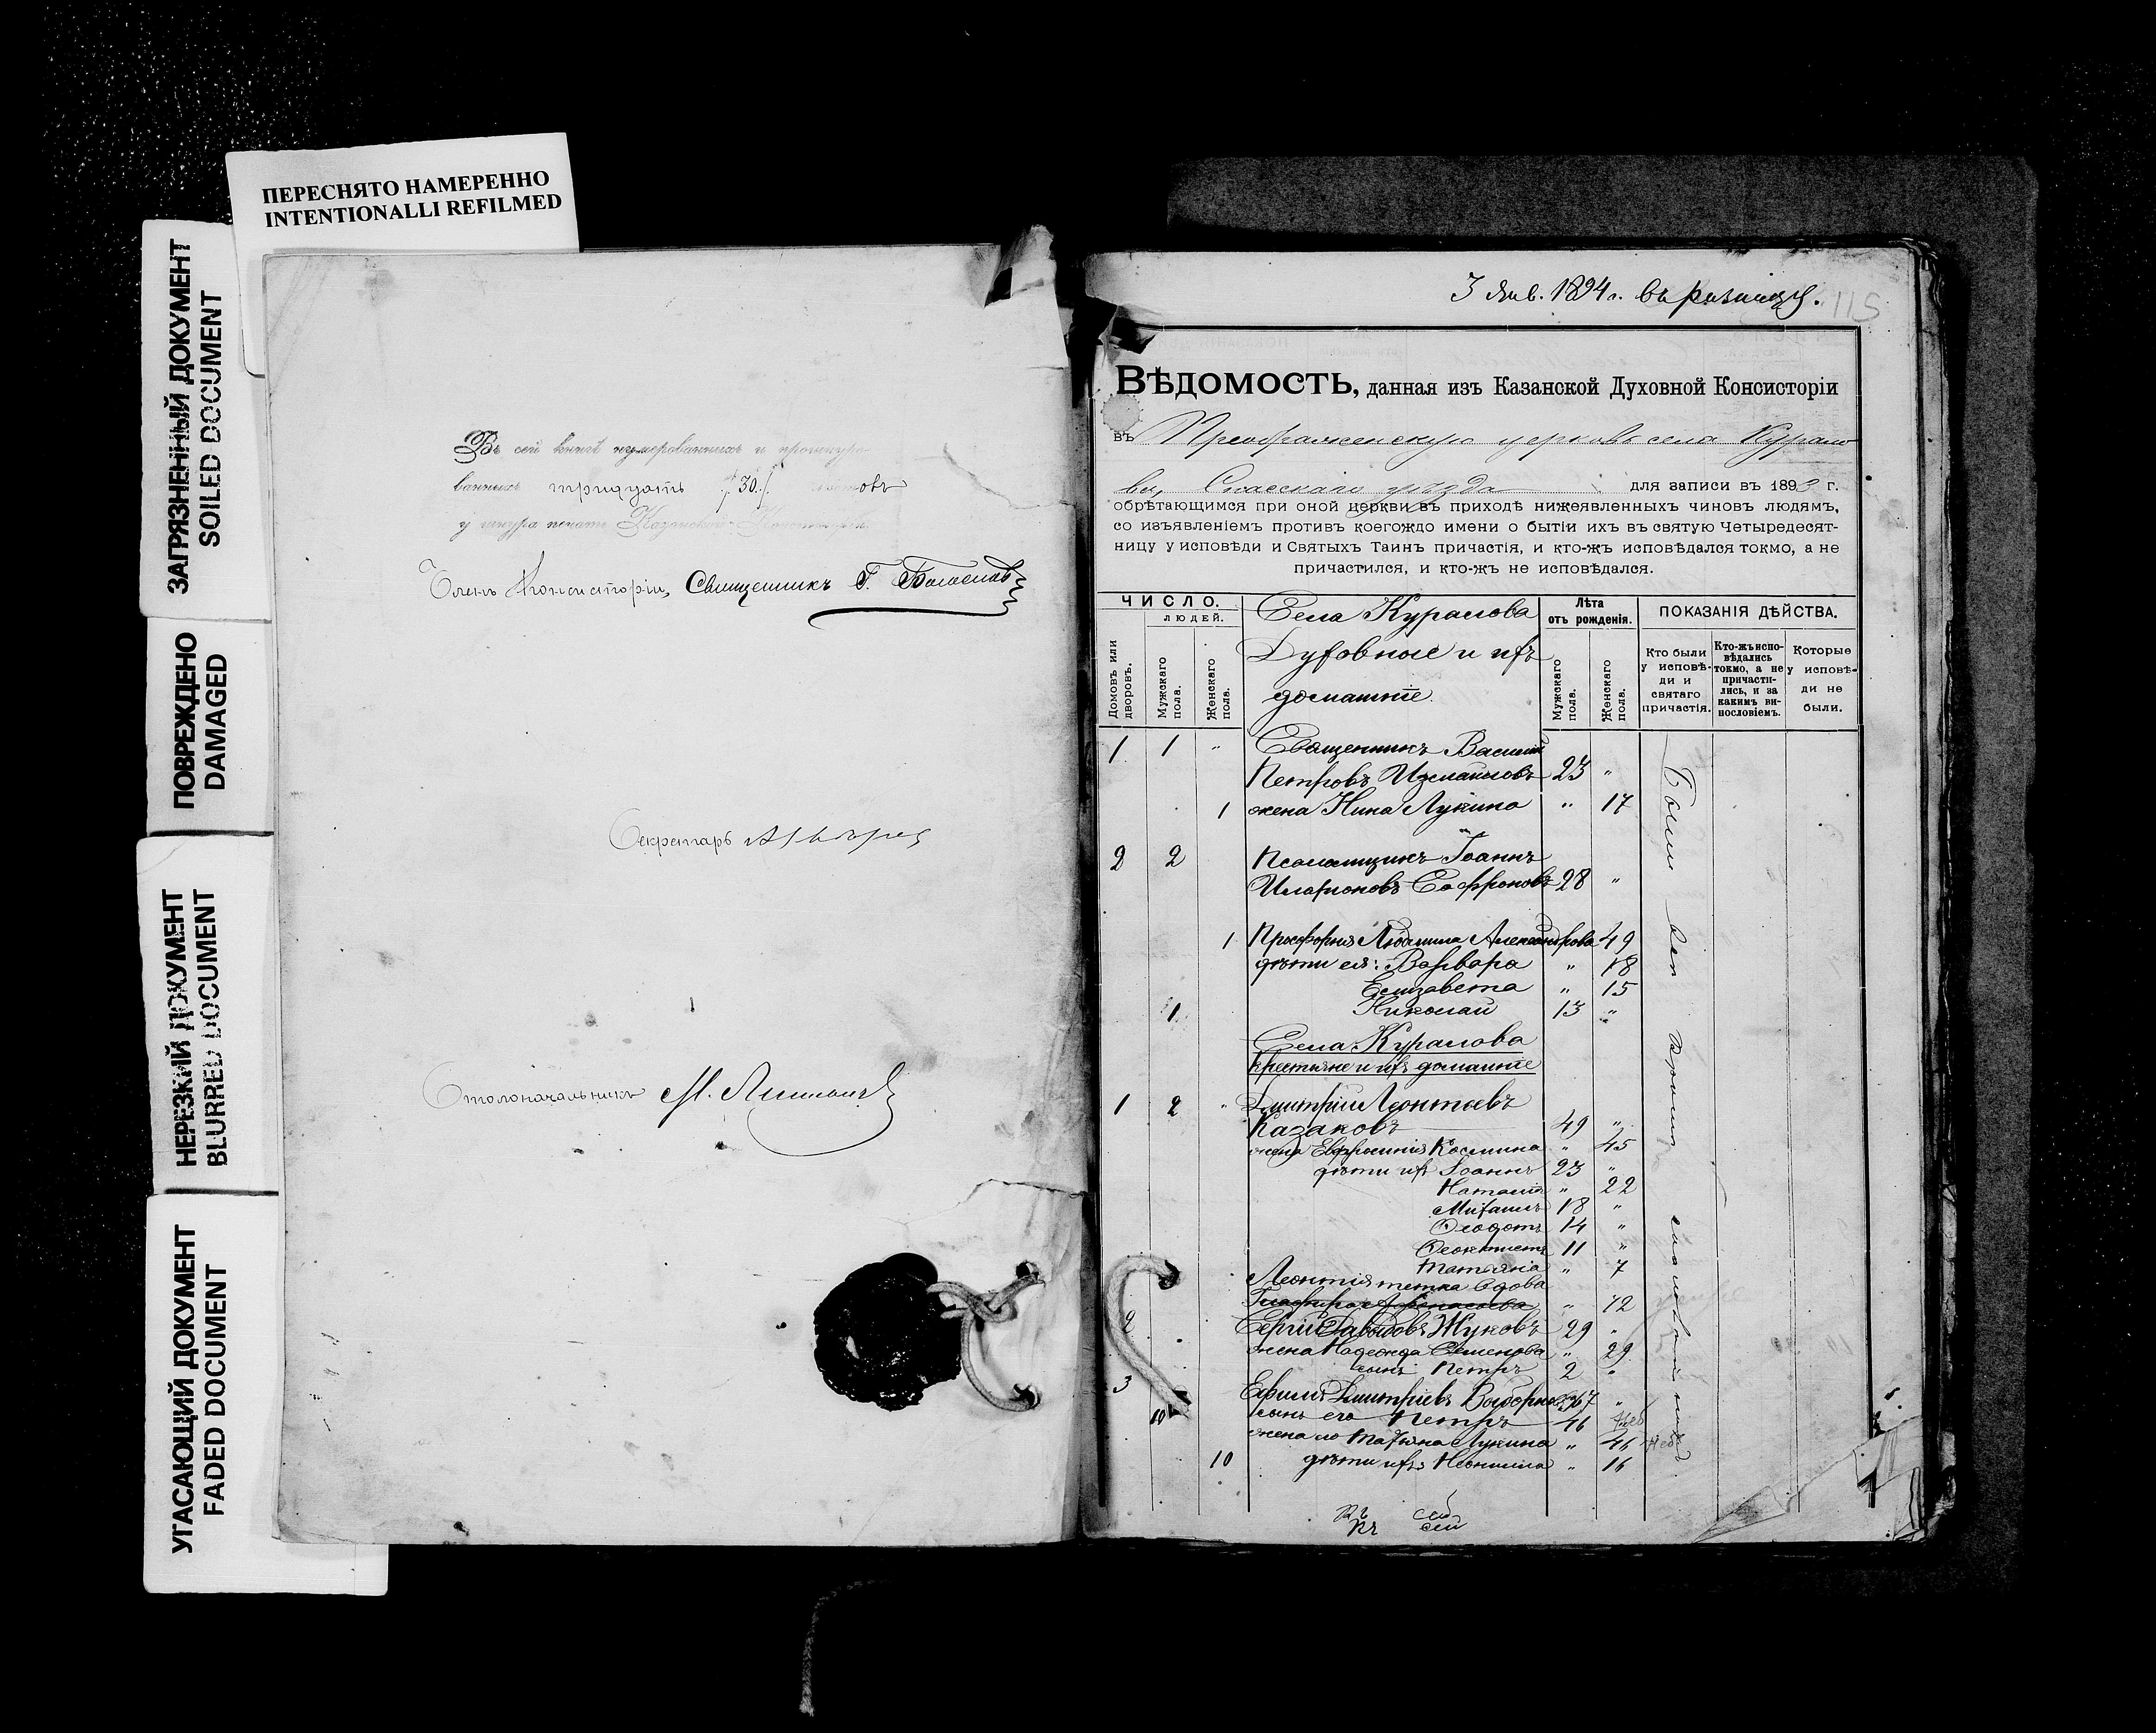 ПЕРЕСНЯТО НАМЕРЕННО
INTENTIONALLI REFILMED
ЗАГРЯЗНЕННЫЙ ДОКУМЕНТ
SOILED DOCUMENT
ПОВРЕЖДЕНО
DAMAGED
НЕРЕЗКИЙ ДОКУМЕНТ
BLURRED DOCUMENT
УГАСАЮЩИЙ ДОКУМЕНТ
FADED DOCUMENT
Въ сей книгѣ нумерованныхъ и прошнуро-
ванныхъ тридцать /30/ листовъ
у шнура печать Казанской Консисторіи
Членъ Консисторіи, Священникъ
Секретарь
Столоначальникъ М.
3 Янв. 1894 г. въ ризницу. 115
ВѢДОМОСТЬ, данная изъ Казанской Духовной Консисторіи
въ Преображенскую церковь села Курало
ва, Спасскаго уѣзда для записи въ 1893 г.
обрѣтающимся при оной церкви въ приходѣ нижеявленныхъ чиновъ людямъ,
со изъявленіемъ противъ коегождо имени о бытіи ихъ въ святую Четыредесят-
ницу у исповѣди и Святыхъ Таинъ причастія, и кто-жъ исповѣдался токмо, а не
причастился, и кто-жъ не исповѣдался.
ЧИСЛО.
людей.
Домовъ или дворовъ.
Мужскаго пола.
Женскаго пола.
Села Куралова
Духовные и ихъ
домашніе.
Лѣта
отъ рожденія.
Мужскаго пола.
Женскаго пола.
ПОКАЗАНІЯ ДѢЙСТВА.
Кто были у исповѣ-ди и святаго причастія.
Кто-жъ испо-вѣдались токмо, а не причасти-лись, и за какимъ ви-нословіемъ.
Которые у исповѣ-ди не были.
1 1 " Священникъ Василій
Петровъ Измайловъ 23 "
1 жена Нина Лукина " 17
2 2 Псаломщикъ Іоаннъ
Иларіоновъ Софроновъ 28 "
1 Просфорня Людмила Александрова 49
дѣти ея: Варвара " 18
Елизавета " 15
1 Николай 13 "
Села Куралова
Крестьяне и ихъ домашніе
1 2 " Димитрій Леонтьевъ
Казаковъ 49 "
жена Евфросинія Космина " 45
дѣти ихъ Іоаннъ 23 "
Наталія " 22
Михаилъ 18 "
Ѳеодотъ 14 "
Ѳеоктистъ 11 "
Татьяна " 7
Леонтія тетка вдова
Гликерія Афанасьева " 72
2 Сергій Давыдовъ Жуковъ 29 "
жена Надежда Семенова " 29
сынъ Петръ 2 "
3 Ефимъ Димитріевъ 67 "
10 сынъ его Петръ 46
жена его Татьяна Лукина " 46
10 дѣти ихъ Неонила " 16
Были всѣ кромѣ